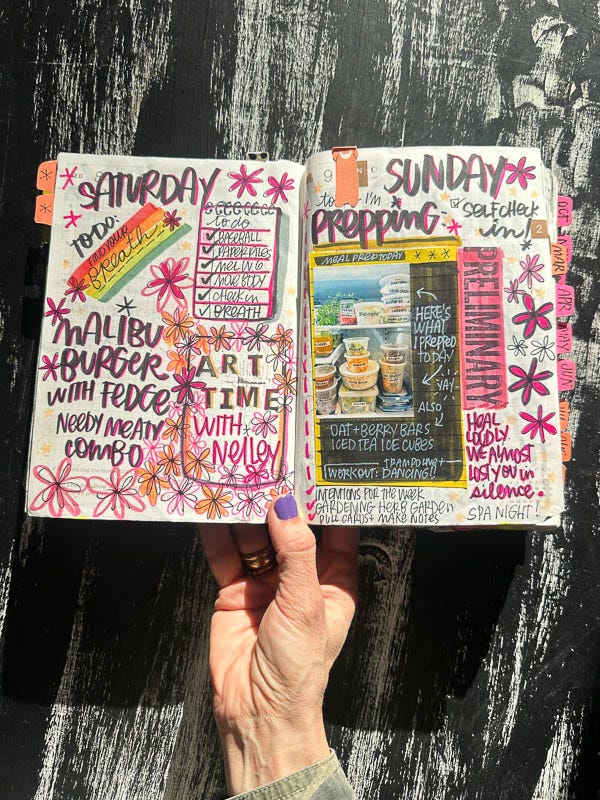 SATURDAY
TO·DO:
FIND YOUR
breath
to do
BASEBALL
PAPER PILES
MEL IN 6
MOVE BODY
CHECK IN
BREATH
MALIBU
BURGER
WITH FEDGE
NEEDY MEATY
COMBO
ART
TIME
WITH
NELLEY
9
SUNDAY
today I'm
PREPPING
SELF CHECK
in!
2
MEAL PREP TODAY
HERE'S
WHAT
I PREPPED
TODAY
YAY
ALSO
OAT + BERRY BARS
ICED TEA ICE CUBES
WORKOUT: TRAMPOLINE +
DANCING!!
PRELIMINARY
HEAL
LOUDLY.
WE ALMOST
LOST YOU IN
silence.
INTENTIONS FOR THE WEEK
GARDENING · HERB GARDEN
PULL CARDS + MAKE NOTES
SPA NIGHT!
OCT
MAR
APR
MAY
JUN